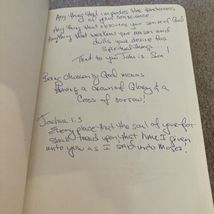 Any thing that impedes the tenderness
of your conscience
Any thing that obscures your sense of God
Anything that weakens your reason and
dulls your desire for
Spiritual things
That to you John is Sin!
Being Obscured by God means
Having a crown of Glory & a
Cross of sorrow!
Joshua 1:3
Every place that the soul of your foot
shall tread upon that have I given
unto you as I said unto Moses!